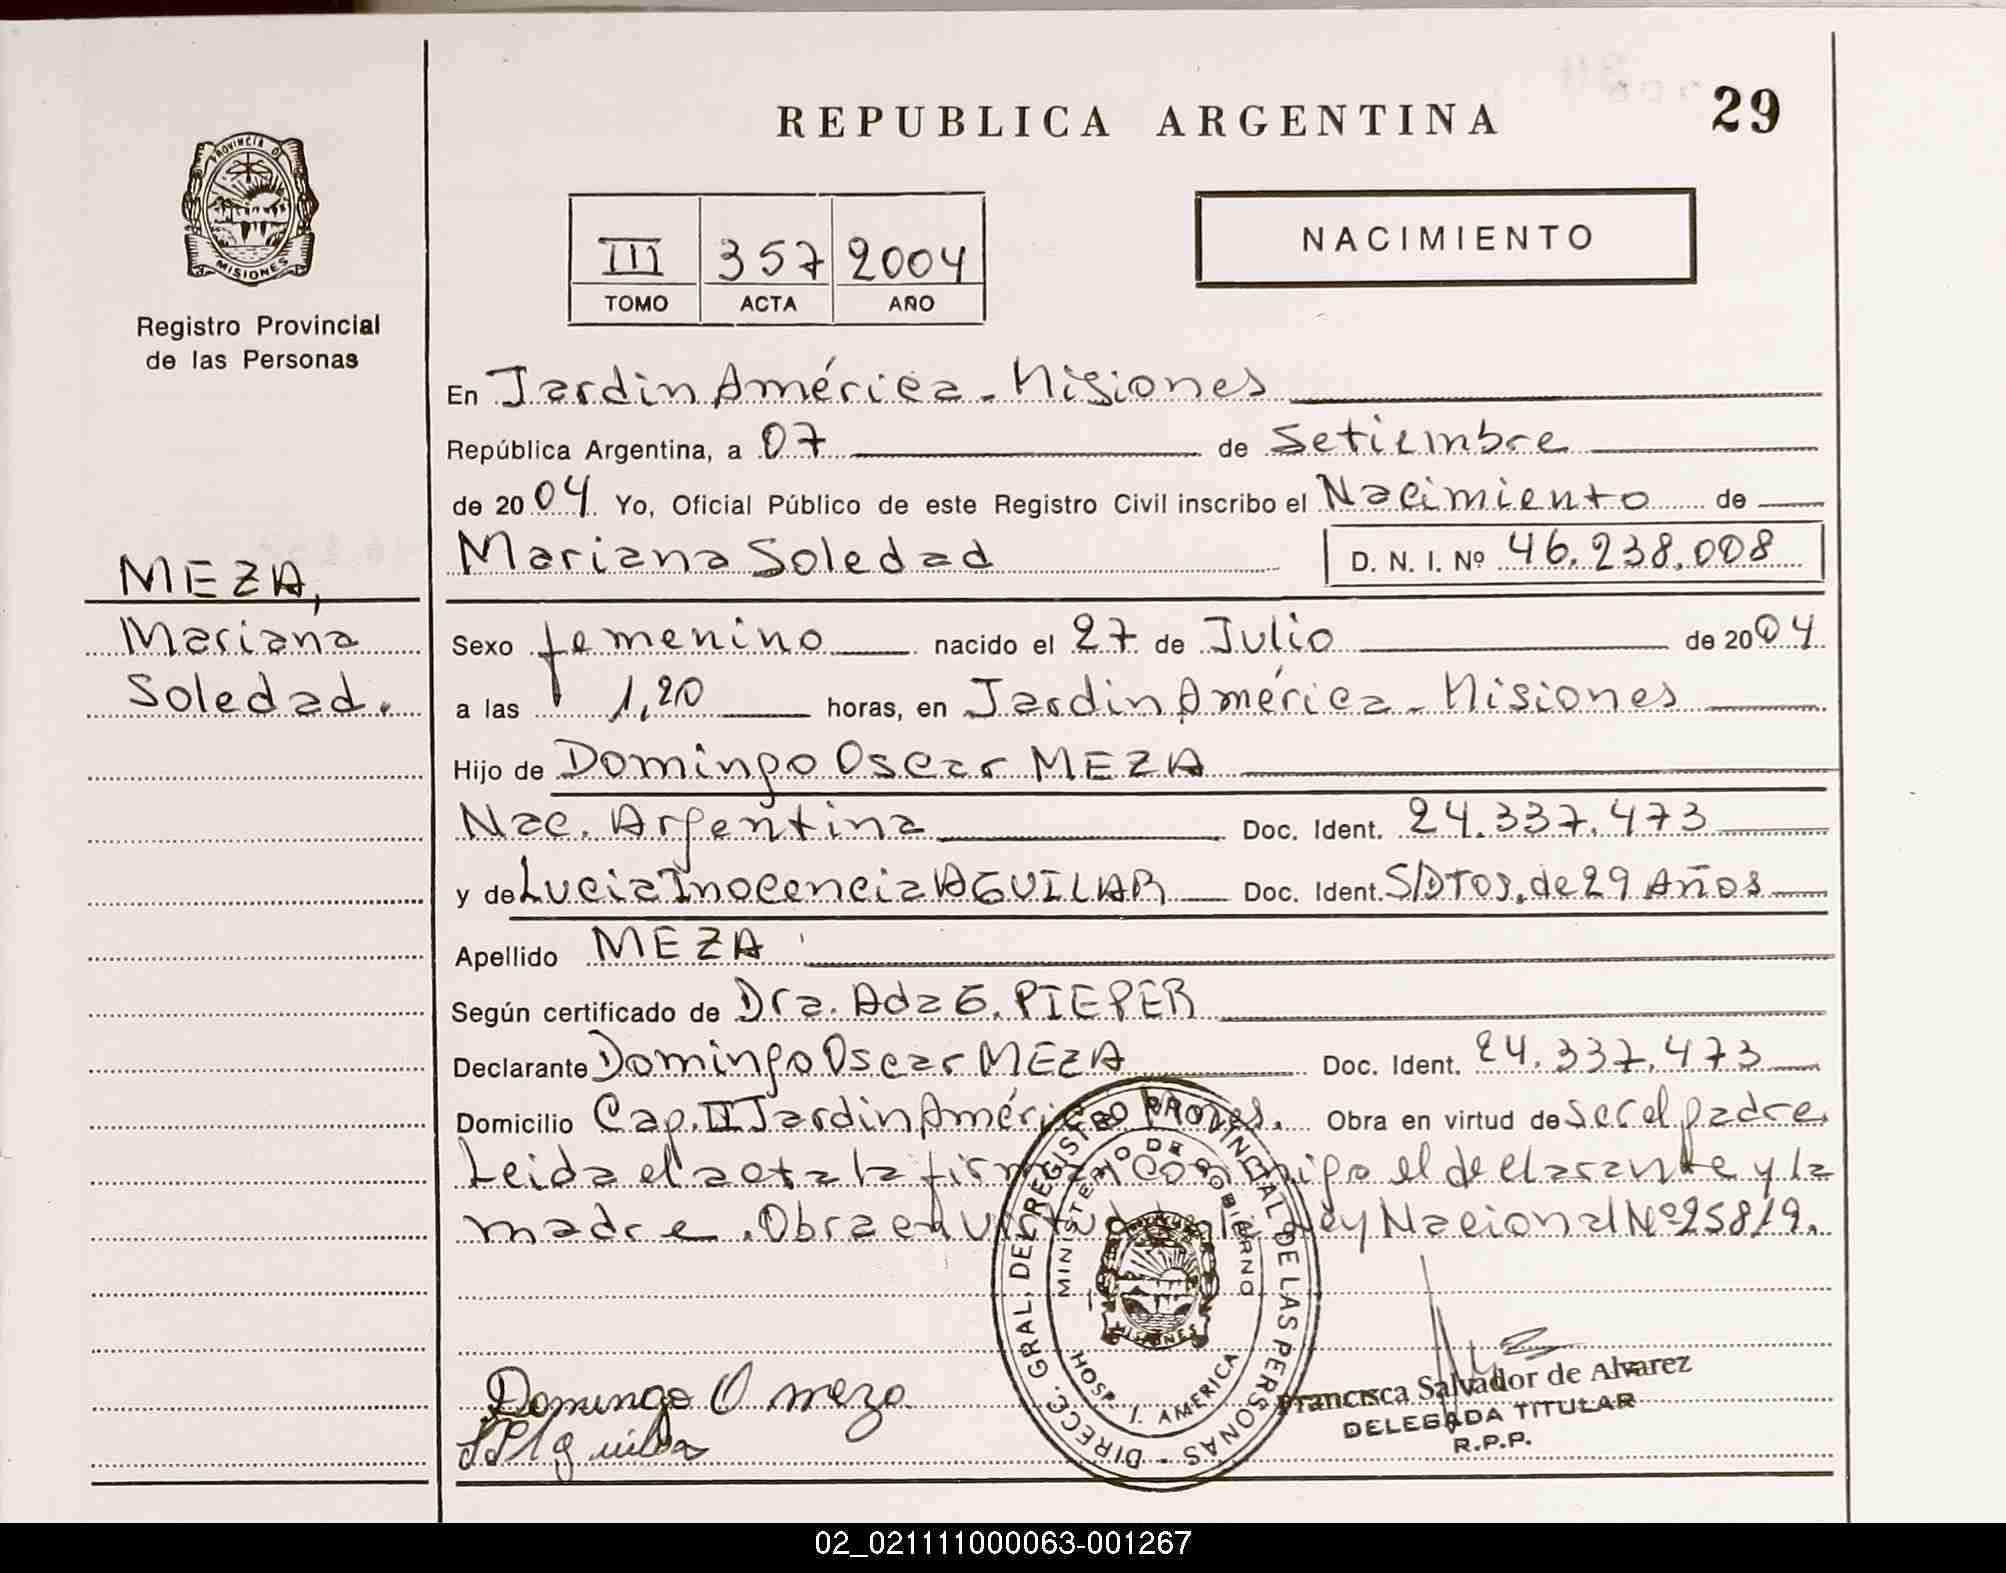 REPUBLICA ARGENTINA
29
PROVINCIA DE
MISIONES
Registro Provincial
de las Personas
III 357 2004
TOMO ACTA AÑO
NACIMIENTO
En Jardin América - Misiones
República Argentina, a 07 de Setiembre
de 2004 Yo, Oficial Público de este Registro Civil inscribo el Nacimiento de
Mariana Soledad D. N. I. Nº 46.238.008
MEZA,
Mariana
Soledad.
Sexo femenino nacido el 27 de Julio de 2004
a las 1,20 horas, en Jardin América - Misiones
Hijo de Domingo Oscar MEZA
Nac. Argentina Doc. Ident. 24.337.473
y de Lucia Inocencia AGUILAR Doc. Ident. S/DTOS. de 29 Años
Apellido MEZA
Según certificado de Dra. Ada G. PIEPER
Declarante Domingo Oscar MEZA Doc. Ident. 24.337.473
Domicilio Cap. II Jardin América Obra en virtud de ser el padre.
Leida el acta la firman conmigo el declarante y la
madre. Obra en virtud Ley Nacional Nº 25819.
DIRECC. GRAL. DEL REGISTRO PROVINCIAL DE LAS PERSONAS
MINISTERIO DE GOBIERNO
MISIONES
HOSP. J. AMERICA
Domingo O meza
Francisca Salvador de Alvarez
DELEGADA TITULAR
R.P.P.
02_021111000063-001267